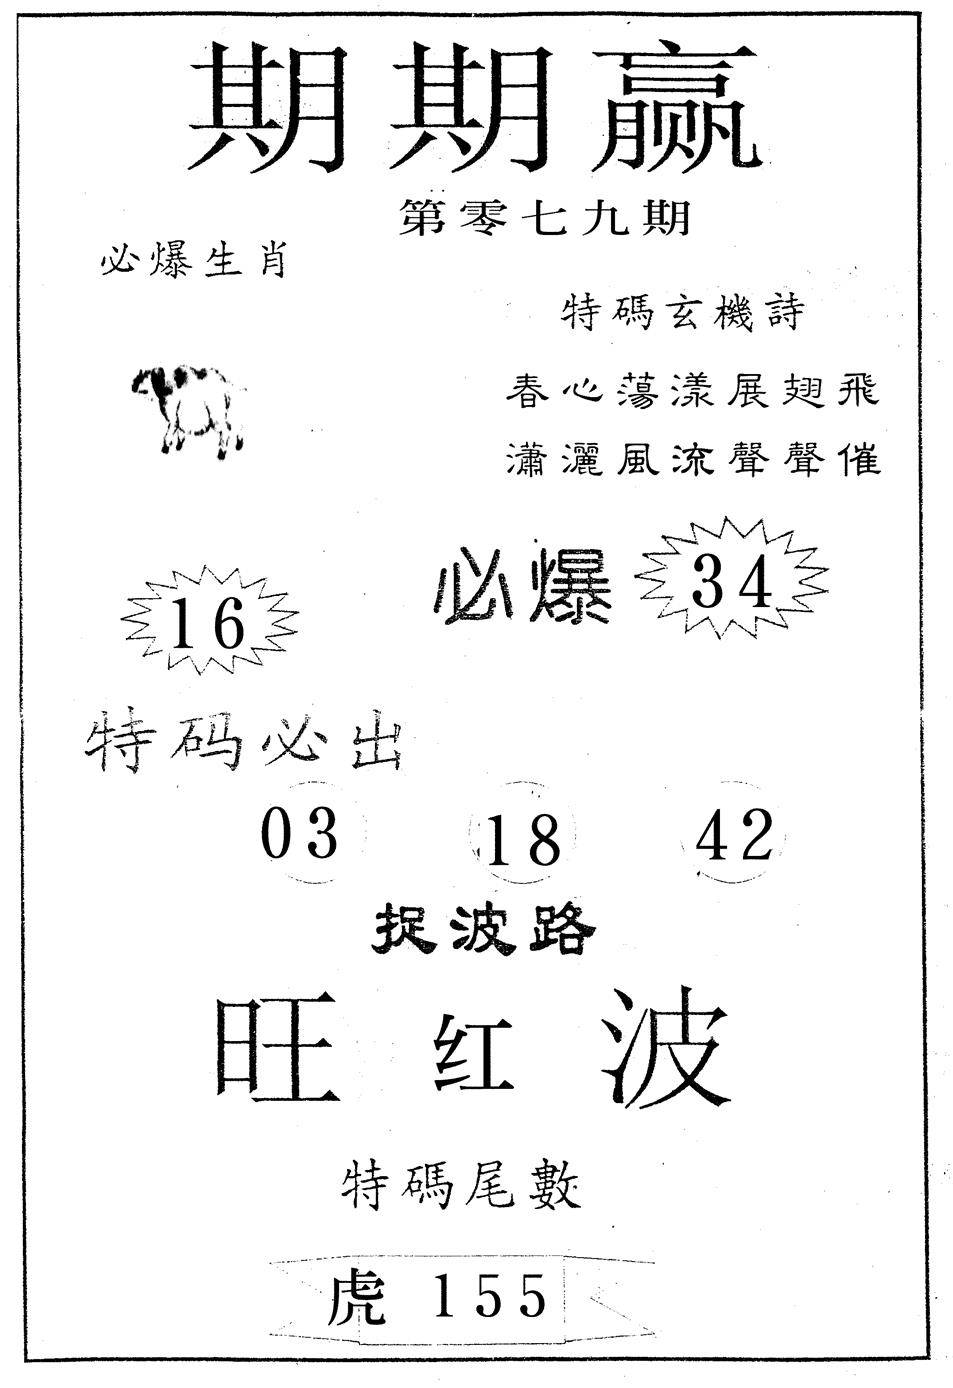 期期赢
第零七九期
必爆生肖
特碼玄機詩
春心蕩漾展翅飛
瀟灑風流聲聲催
必爆 34
16
特码必出
03 18 42
捉波路
旺红波
特碼尾數
虎 155